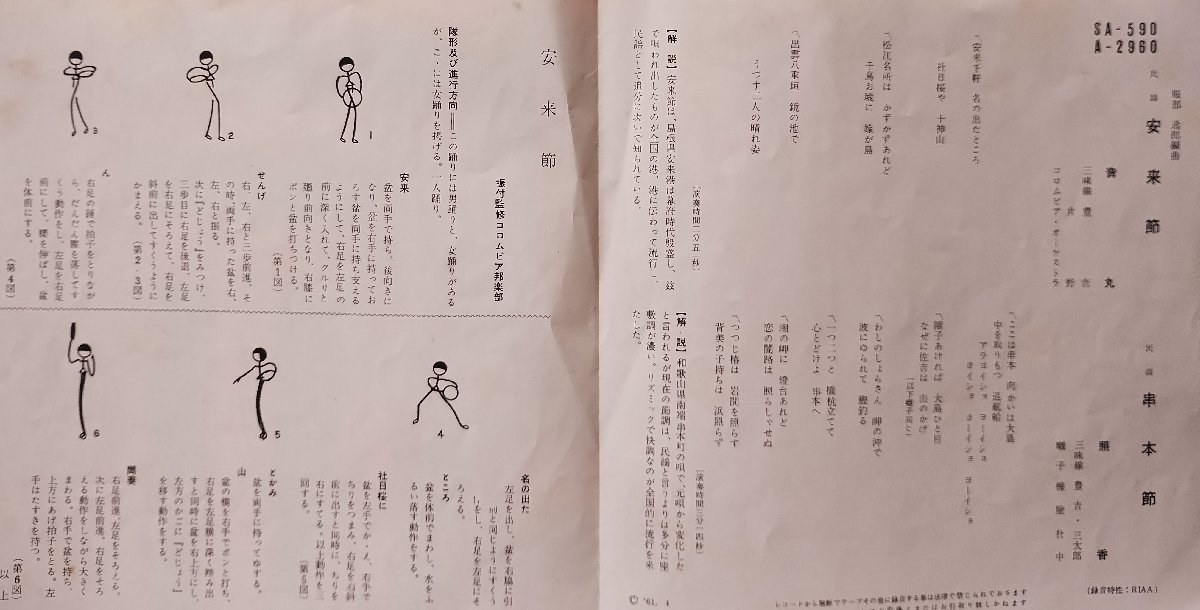 SA-590
A-2960
服部逸郎編曲
民謡
安来節
音丸
三味線 豊
コロムビア・オーケストラ
〽安来千軒 名の出たところ
社日桜や 十神山
〽松江名所は かずかずあれど
千鳥お城に 嫁が島
〽出雲八重垣 鏡の池で
うつす二人の晴れ姿
(演奏時間二分五一秒)
【解説】安来節は、島根県安来港は幕府時代殷盛し、玆
て唄われ出したものが全国の港、港に伝わって流行し、
民謡として追分に次いで知られている。
民謡
串本節
照香
三味線 豊吉・三太郎
囃子 社中
〽ここは串本 向かいは大島
中を取りもつ 巡航船
アラヨイショ ヨーイショ
ヨイショ ヨイショ ヨーイショ
〽障子あければ 大島ひと目
なぜに佐吉は 山のかげ
(以下囃子同じ)
〽わしのしょらさん 岬の沖で
波にゆられて 鰹釣る
〽一つ二つと 橋杭立てて
心とどけよ 串本へ
〽潮の岬に 燈台あれど
恋の闇路は 照らしゃせぬ
〽つつじ椿は 岩間を照らす
背美の子持ちは 浜照らす
(演奏時間三分一四秒)
【解説】和歌山県南端串本町の唄で、元唄から変化した
と言われるが現在の節調は、民謡と言うよりは多分に座
敷調が濃い。リズミックで快調なのが全国的に流行を来
たした。
(録音特性：RIAA)
© '61. 4
レコードから無断でテープその他に録音する事は法律で禁じられております
安来節
振付監修コロムビア邦楽部
隊形及び進行方向――この踊りには男踊りと、女踊りがある
が、ここには女踊りを掲げる。一人踊り。
1
2
3
安来
盆を両手で持ち、後向きに
なり、盆を右手に持ってお
ろす盆を両手に持ち支える
ようにして、右足を左足の
前に深く入れて、クルリと
廻り前向きとなり、右膝に
ポンと盆を打ちつける。
(第1図)
せんげ
右、左、右と三歩前進、そ
の時、両手に持った盆を右、
左、右と振る。
次に『どじょう』をみつけ、
三歩目に右足を後退、左足
を右足にそろえて、右足を
斜前に出してすくうように
かまえる。(第2・3図)
ん
右足の踵で拍子をとりなが
ら、だんだん腰を落してす
くう動作をし、左足を右足
前にして、腰を伸ばし、盆
を体前にする。
(第4図)
4
5
6
名の出た
左足を出し、盆を右脇に引
き、前と同じようにすくう
しをし、右足を左足にそ
ろえる。
ところ
盆を体前でまわし、水をふ
るい落す動作をする。
社日桜に
盆を左手でかゝえ、右手で
ちりをつまみ、右足を右斜
前に出すと同時に、ちりを
右にすてる。以上動作を二
回する。(第5図)
とかみ
盆を両手に持ってゆする。
山
盆の横を右手でポンと打ち、
右足を左足横に深く踏み出
すと同時に盆を右上方にし、
左方のかごに『どじょう』
を移す動作をする。
間奏
右足前進、左足をそろえる。
次に左足前進、右足をそろ
える動作をしながら大きく
まわる。右手で盆を持ち、
上方にあげ拍子をとる。左
手はたすきを持つ。
(第6図)
以上